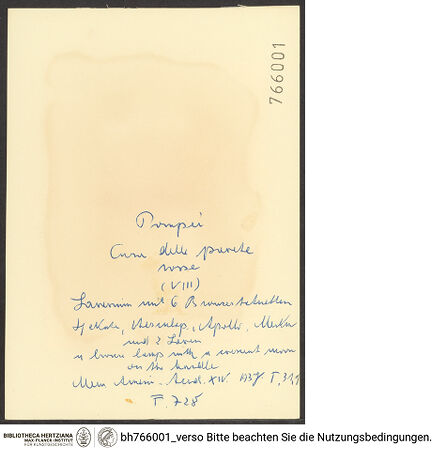 766001
Pompei
Casa delle parete
rosse
(VIII)
Lararium mit 6 Bronzestatuetten
Hekate, Aesculap, Apollo, Merkur
und 2 Laren
a bronze lamp with a crescent moon
on the handle
Mem. Amer. Acad. XIV. 1937 T. 3,1
F. 728
BIBLIOTHECA HERTZIANA
MAX-PLANCK-INSTITUT
FÜR KUNSTGESCHICHTE
bh766001_verso Bitte beachten Sie die Nutzungsbedingungen.